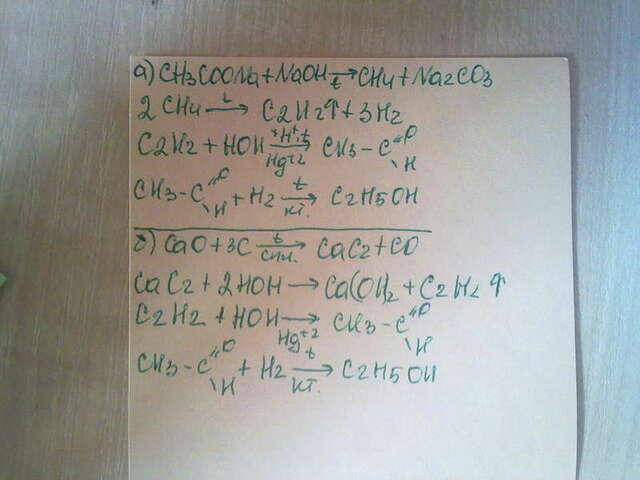 а) CH3COONa + NaOH t→ CH4 + Na2CO3
2 CH4 t→ C2H2↑ + 3H2
C2H2 + HOH +H+, t Hg+2→ CH3 – C =O \ H
CH3 – C =O \ H + H2 t кт.→ C2H5OH
б) CaO + 3C t спл.→ CaC2 + CO
CaC2 + 2HOH → Ca(OH)2 + C2H2 ↑
C2H2 + HOH Hg+2→ CH3 – C =O \ H
CH3 – C =O \ H + H2 t кт.→ C2H5OH